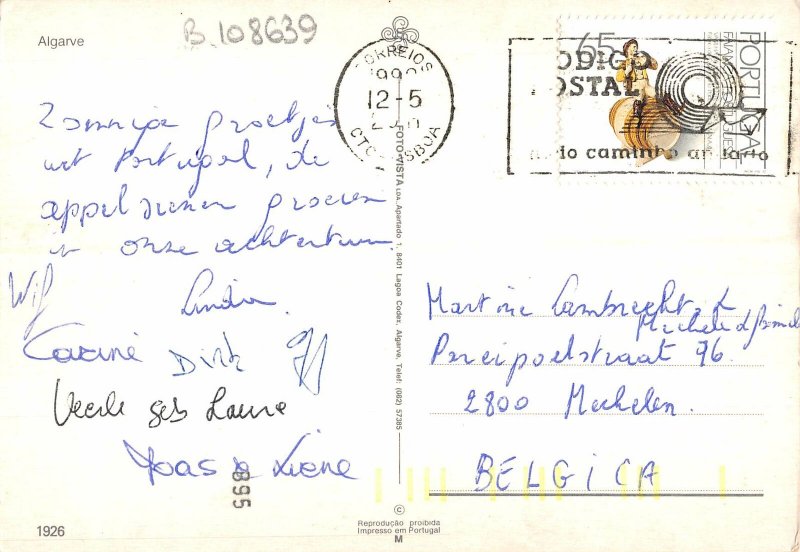 Algarve
B.108639
Zonnige groetjes
uit Portugal, de
appelsienen groeien
in onze achtertuin
Linda
Carine Dirk
Veerle Seb Laura
Joas & Liene
895
1926
CORREIOS
12-5
FOTO-VISTA LDA. Apartado 1, 8401 Lagoa Codex, Algarve, Telef: (082) 57385
©
Reprodução proibida
Impresso em Portugal
M
65
PORTUGAL
CÓDIGO
POSTAL
meio caminho andado
Martine Lambrechts &
Michele
Parijpoelstraat 76
2800 Mechelen
BELGICA